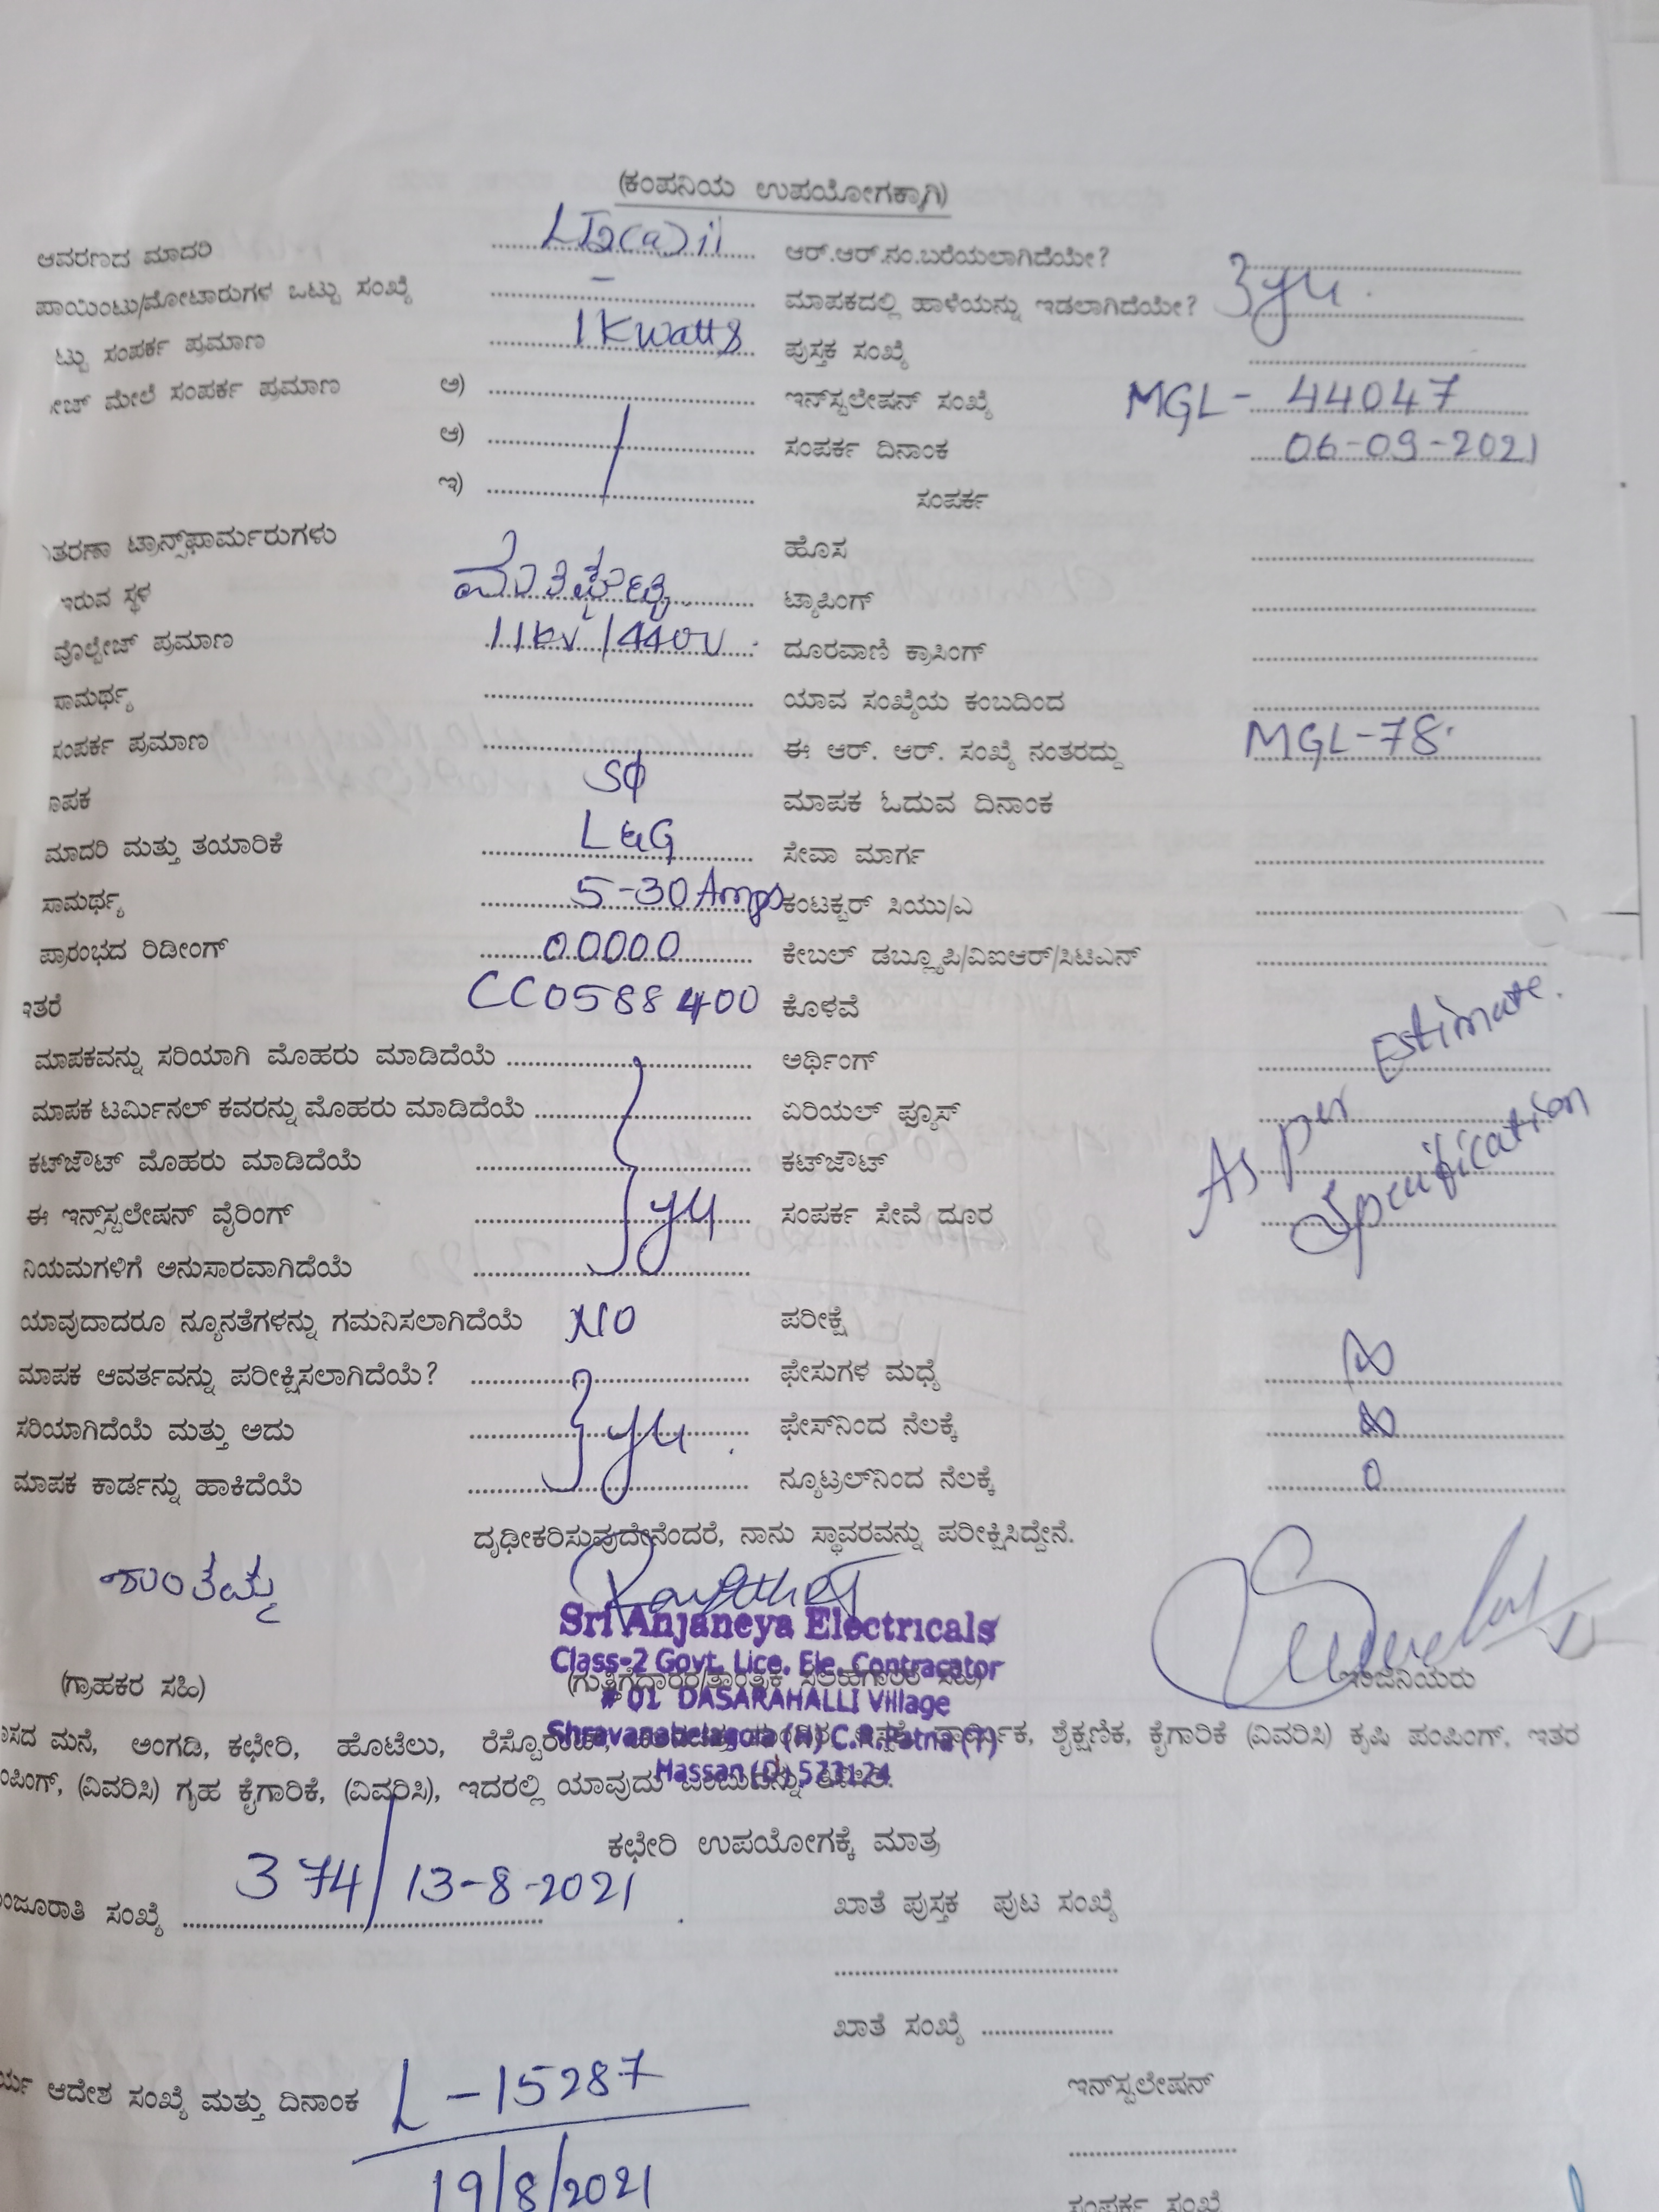 (ಕಂಪನಿಯ ಉಪಯೋಗಕ್ಕಾಗಿ)
ಆವರಣದ ಮಾದರಿ LT2(a)ii ಆರ್.ಆರ್.ನಂ.ಬರೆಯಲಾಗಿದೆಯೇ?
ಪಾಯಿಂಟು/ಮೋಟಾರುಗಳ ಒಟ್ಟು ಸಂಖ್ಯೆ – ಮಾಪಕದಲ್ಲಿ ಹಾಳೆಯನ್ನು ಇಡಲಾಗಿದೆಯೇ? } yes
ಟ್ಟು ಸಂಪರ್ಕ ಪ್ರಮಾಣ 1Kwatts ಪುಸ್ತಕ ಸಂಖ್ಯೆ
ೇಜ್ ಮೇಲೆ ಸಂಪರ್ಕ ಪ್ರಮಾಣ ಅ) ಇನ್‌ಸ್ಟಲೇಷನ್ ಸಂಖ್ಯೆ MGL- 44047
ಆ) ಸಂಪರ್ಕ ದಿನಾಂಕ 06-09-2021
ಇ) ಸಂಪರ್ಕ
ತರಣಾ ಟ್ರಾನ್ಸ್‌ಫಾರ್ಮರುಗಳು ಹೊಸ
ಇರುವ ಸ್ಥಳ ಟ್ಯಾಪಿಂಗ್
ವೊಲ್ಟೇಜ್ ಪ್ರಮಾಣ 11kv/440v ದೂರವಾಣಿ ಕ್ರಾಸಿಂಗ್
ಸಾಮರ್ಥ್ಯ ಯಾವ ಸಂಖ್ಯೆಯ ಕಂಬದಿಂದ
ಸಂಪರ್ಕ ಪ್ರಮಾಣ ಈ ಆರ್. ಆರ್. ಸಂಖ್ಯೆ ನಂತರದ್ದು MGL-78
ಾಪಕ Sφ ಮಾಪಕ ಓದುವ ದಿನಾಂಕ
ಮಾದರಿ ಮತ್ತು ತಯಾರಿಕೆ L&G ಸೇವಾ ಮಾರ್ಗ
ಸಾಮರ್ಥ್ಯ 5-30 Amps ಕಂಟಕ್ಟರ್ ಸಿಯು/ಎ
ಪ್ರಾರಂಭದ ರಿಡೀಂಗ್ 00000 ಕೇಬಲ್ ಡಬ್ಲ್ಯೂಪಿ/ವಿಐಆರ್/ಸಿಟಿಎನ್
ಇತರೆ CC0588400 ಕೊಳವೆ
ಮಾಪಕವನ್ನು ಸರಿಯಾಗಿ ಮೊಹರು ಮಾಡಿದೆಯೆ ಅರ್ಥಿಂಗ್ As per Estimate.
ಮಾಪಕ ಟರ್ಮಿನಲ್ ಕವರನ್ನು ಮೊಹರು ಮಾಡಿದೆಯೆ ಏರಿಯಲ್ ಫ್ಯೂಸ್ Specification
ಕಟ್‌ಜೌಟ್ ಮೊಹರು ಮಾಡಿದೆಯೆ ಕಟ್‌ಜೌಟ್
ಈ ಇನ್ಸ್‌ಸ್ಟಲೇಷನ್ ವೈರಿಂಗ್ } yes ಸಂಪರ್ಕ ಸೇವೆ ದೂರ
ನಿಯಮಗಳಿಗೆ ಅನುಸಾರವಾಗಿದೆಯೆ
ಯಾವುದಾದರೂ ನ್ಯೂನತೆಗಳನ್ನು ಗಮನಿಸಲಾಗಿದೆಯೆ NO ಪರೀಕ್ಷೆ
ಮಾಪಕ ಆವರ್ತವನ್ನು ಪರೀಕ್ಷಿಸಲಾಗಿದೆಯೆ? ಫೇಸುಗಳ ಮಧ್ಯೆ ∞
ಸರಿಯಾಗಿದೆಯೆ ಮತ್ತು ಅದು } yes ಫೇಸ್‌ನಿಂದ ನೆಲಕ್ಕೆ ∞
ಮಾಪಕ ಕಾರ್ಡನ್ನು ಹಾಕಿದೆಯೆ ನ್ಯೂಟ್ರಲ್‌ನಿಂದ ನೆಲಕ್ಕೆ 0
ದೃಢೀಕರಿಸುವುದೇನೆಂದರೆ, ನಾನು ಸ್ಥಾವರವನ್ನು ಪರೀಕ್ಷಿಸಿದ್ದೇನೆ.
ಶಾಂತಮ್ಮ
Sri Anjaneya Electricals
Class-2 Govt. Lice. Ele. Contracator
(ಗ್ರಾಹಕರ ಸಹಿ) (ಗುತ್ತಿಗೆದಾರರ/ತಾಂತ್ರಿಕ ಸಲಹೆಗಾರರ ಸಹಿ) ಇಂಜಿನಿಯರು
# 01 DASARAHALLI Village
Shravanabelagola (H) C.R.Patna (T)
Hassan (D) 573124
ಾಸದ ಮನೆ, ಅಂಗಡಿ, ಕಛೇರಿ, ಹೊಟೆಲು, ಶೈಕ್ಷಣಿಕ, ಕೈಗಾರಿಕೆ (ವಿವರಿಸಿ) ಕೃಷಿ ಪಂಪಿಂಗ್, ಇತರ
ಂಪಿಂಗ್, (ವಿವರಿಸಿ) ಗೃಹ ಕೈಗಾರಿಕೆ, (ವಿವರಿಸಿ), ಇದರಲ್ಲಿ ಯಾವುದು ಎಂಬುದನ್ನು ತಿಳಿಸಿ.
ಕಛೇರಿ ಉಪಯೋಗಕ್ಕೆ ಮಾತ್ರ
ಂಜೂರಾತಿ ಸಂಖ್ಯೆ 374/13-8-2021 ಖಾತೆ ಪುಸ್ತಕ ಪುಟ ಸಂಖ್ಯೆ
ಖಾತೆ ಸಂಖ್ಯೆ
ರ್ಯ ಆದೇಶ ಸಂಖ್ಯೆ ಮತ್ತು ದಿನಾಂಕ L-15287 ಇನ್‌ಸ್ಟಲೇಷನ್
19/8/2021
ಸಂಪರ್ಕ ಸಂಖ್ಯೆ